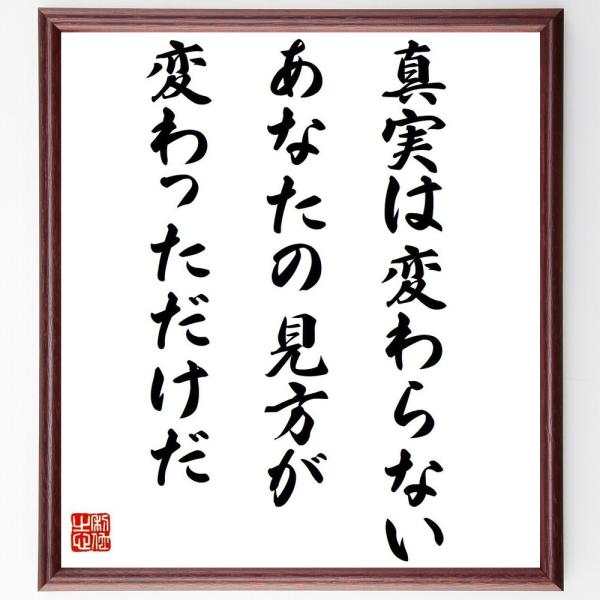 真実は変わらない
あなたの見方が
変わっただけだ